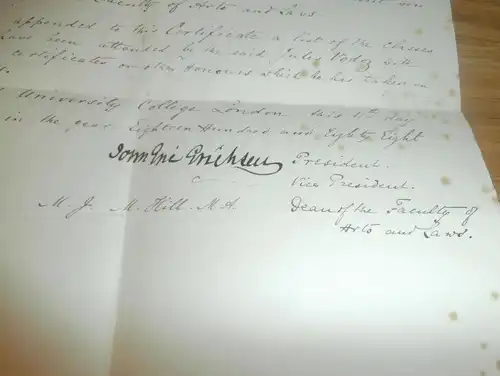 Faculty of Arts and Laws.
appended to this Certificate a list of the classes
have been attended by the said Jules Vodoz with
certificates or other Honours which he has taken in
University College London this day
in the year Eighteen Hundred and Eighty Eight
John Eric Erichsen President.
Vice President.
M. J. M. Hill. M.A. Dean of the Faculty of
Arts and Laws.